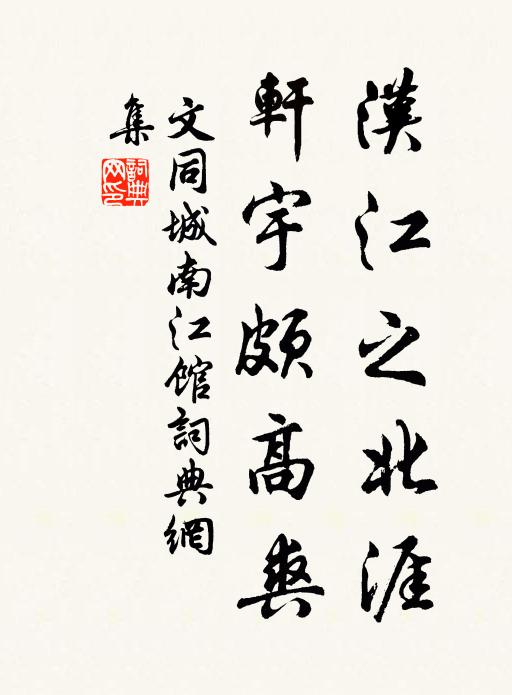 漢江之北涯
軒宇頗高爽
文同城南江館詞典網
集
詞典
网印